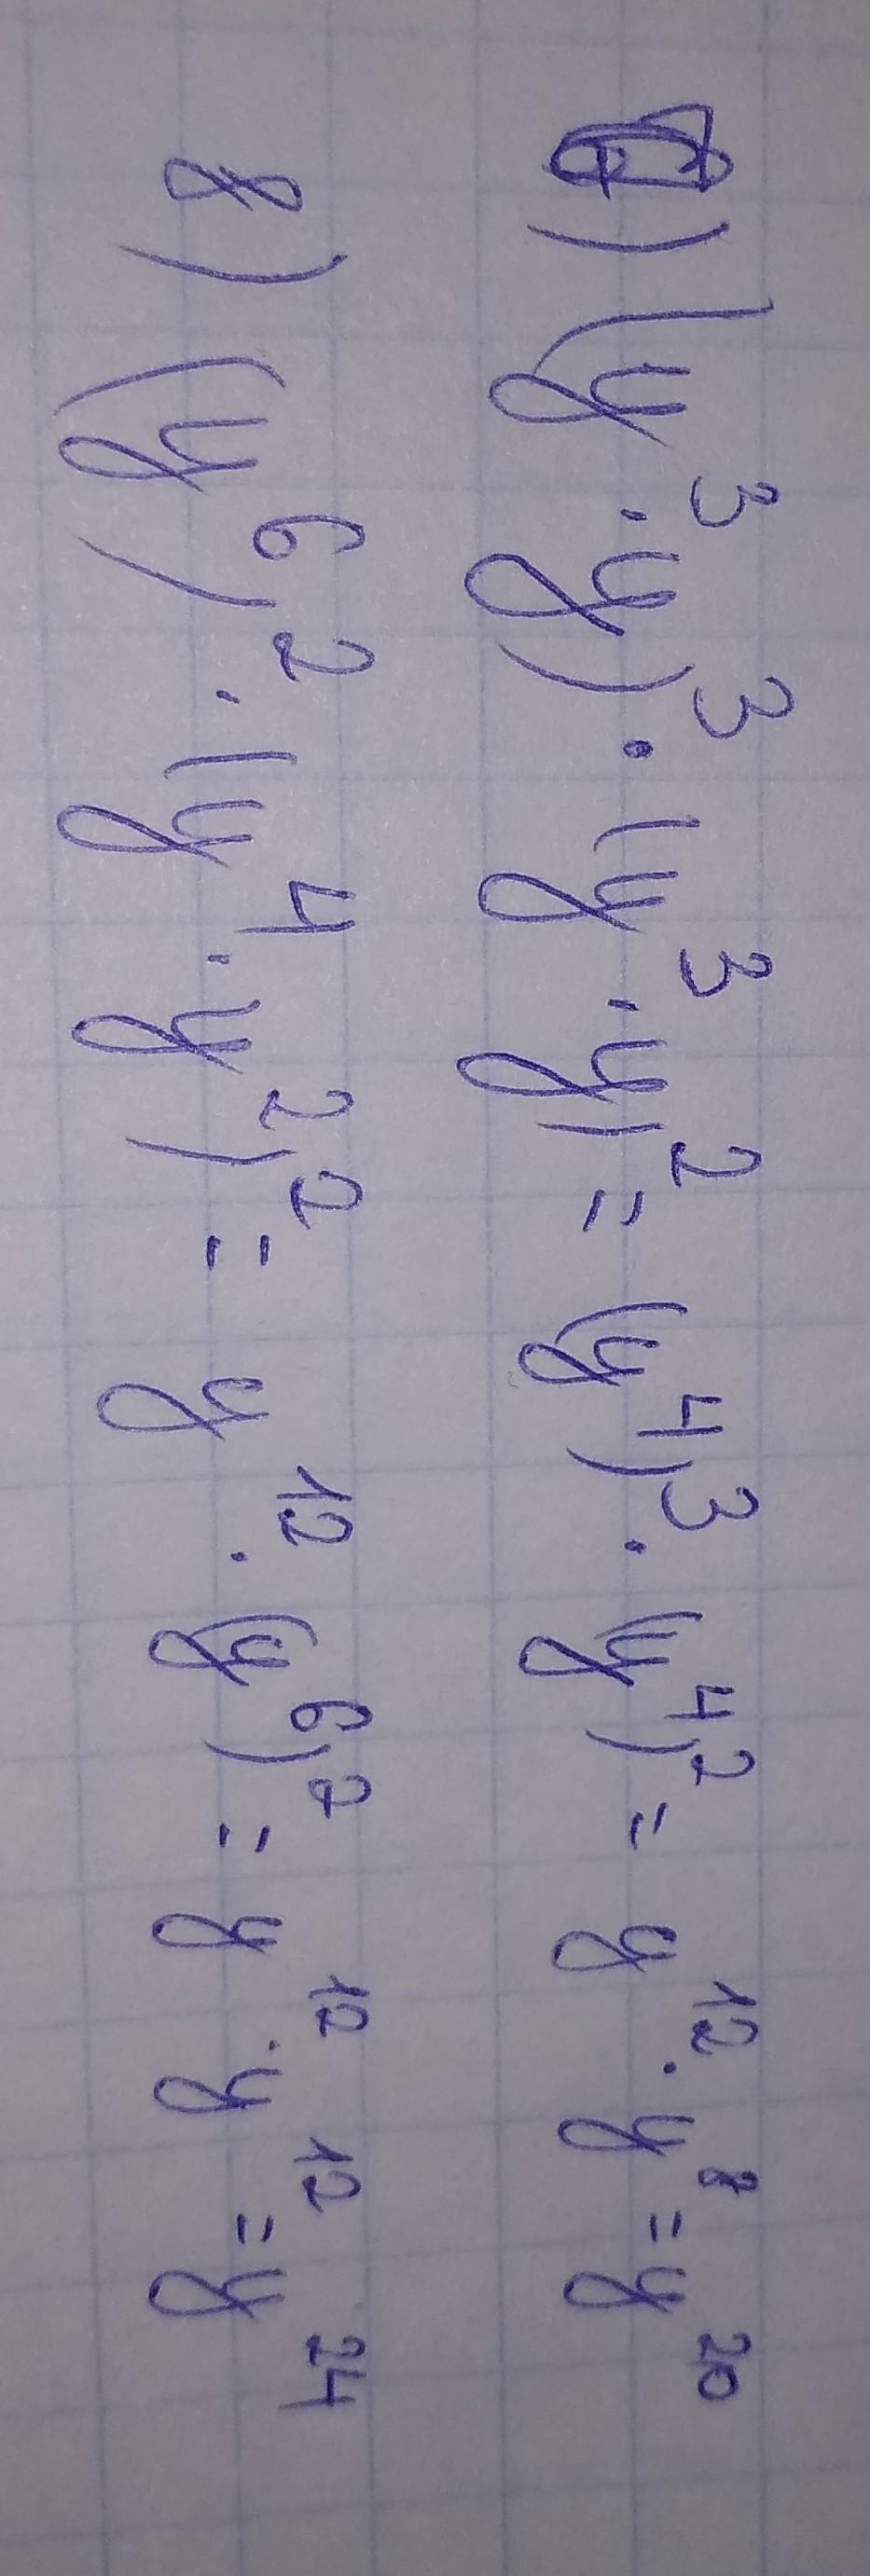 ) (y³·y)³·(y³·y)²=(y⁴)³·(y⁴)²=y¹²·y⁸=y²⁰
8) (y⁶)²·(y⁴·y²)²=y¹²·(y⁶)²=y¹²·y¹²=y²⁴